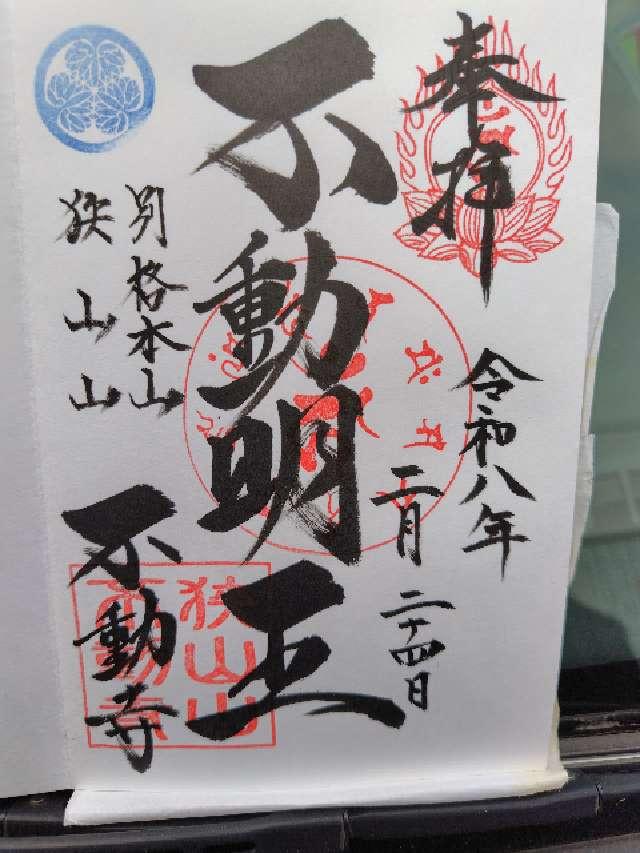 奉拝
令和八年
二月二十四日
不動明王
別格本山
狭山山
不動寺
狭山山
不動寺